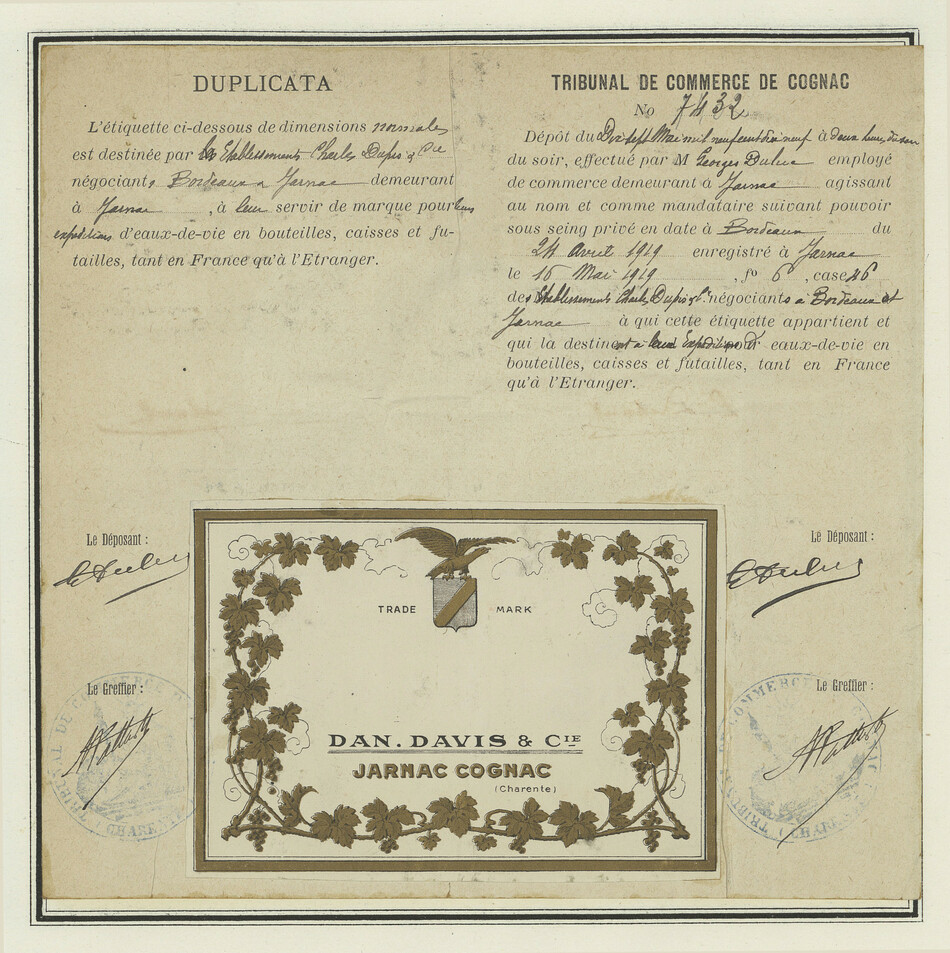 DUPLICATA
L'étiquette ci-dessous de dimensions normales
est destinée par les Etablissements Charles Dupis & Cie
négociants Bordeaux & Jarnac demeurant
à Jarnac, à leur servir de marque pour leurs
expéditions d'eaux-de-vie en bouteilles, caisses et fu-
tailles, tant en France qu'à l'Etranger.
TRIBUNAL DE COMMERCE DE COGNAC
No 7432
Dépôt du Dix sept Mai mil neuf cent dix neuf à deux heures
du soir, effectué par M Georges Duluc employé
de commerce demeurant à Jarnac agissant
au nom et comme mandataire suivant pouvoir
sous seing privé en date à Bordeaux du
24 avril 1919 enregistré à Jarnac
le 16 Mai 1919, fo 6, case 46
des Etablissements Charles Dupis & Cie négociants à Bordeaux et
Jarnac à qui cette étiquette appartient et
qui la destinent à leurs Expéditions d' eaux-de-vie en
bouteilles, caisses et futailles, tant en France
qu'à l'Etranger.
Le Déposant :
Le Déposant :
TRADE MARK
Le Greffier :
Le Greffier :
DAN. DAVIS & CIE
JARNAC COGNAC
(Charente)
TRIBUNAL DE COMMERCE
CHARENTE
COMMERCE
CHARENTE